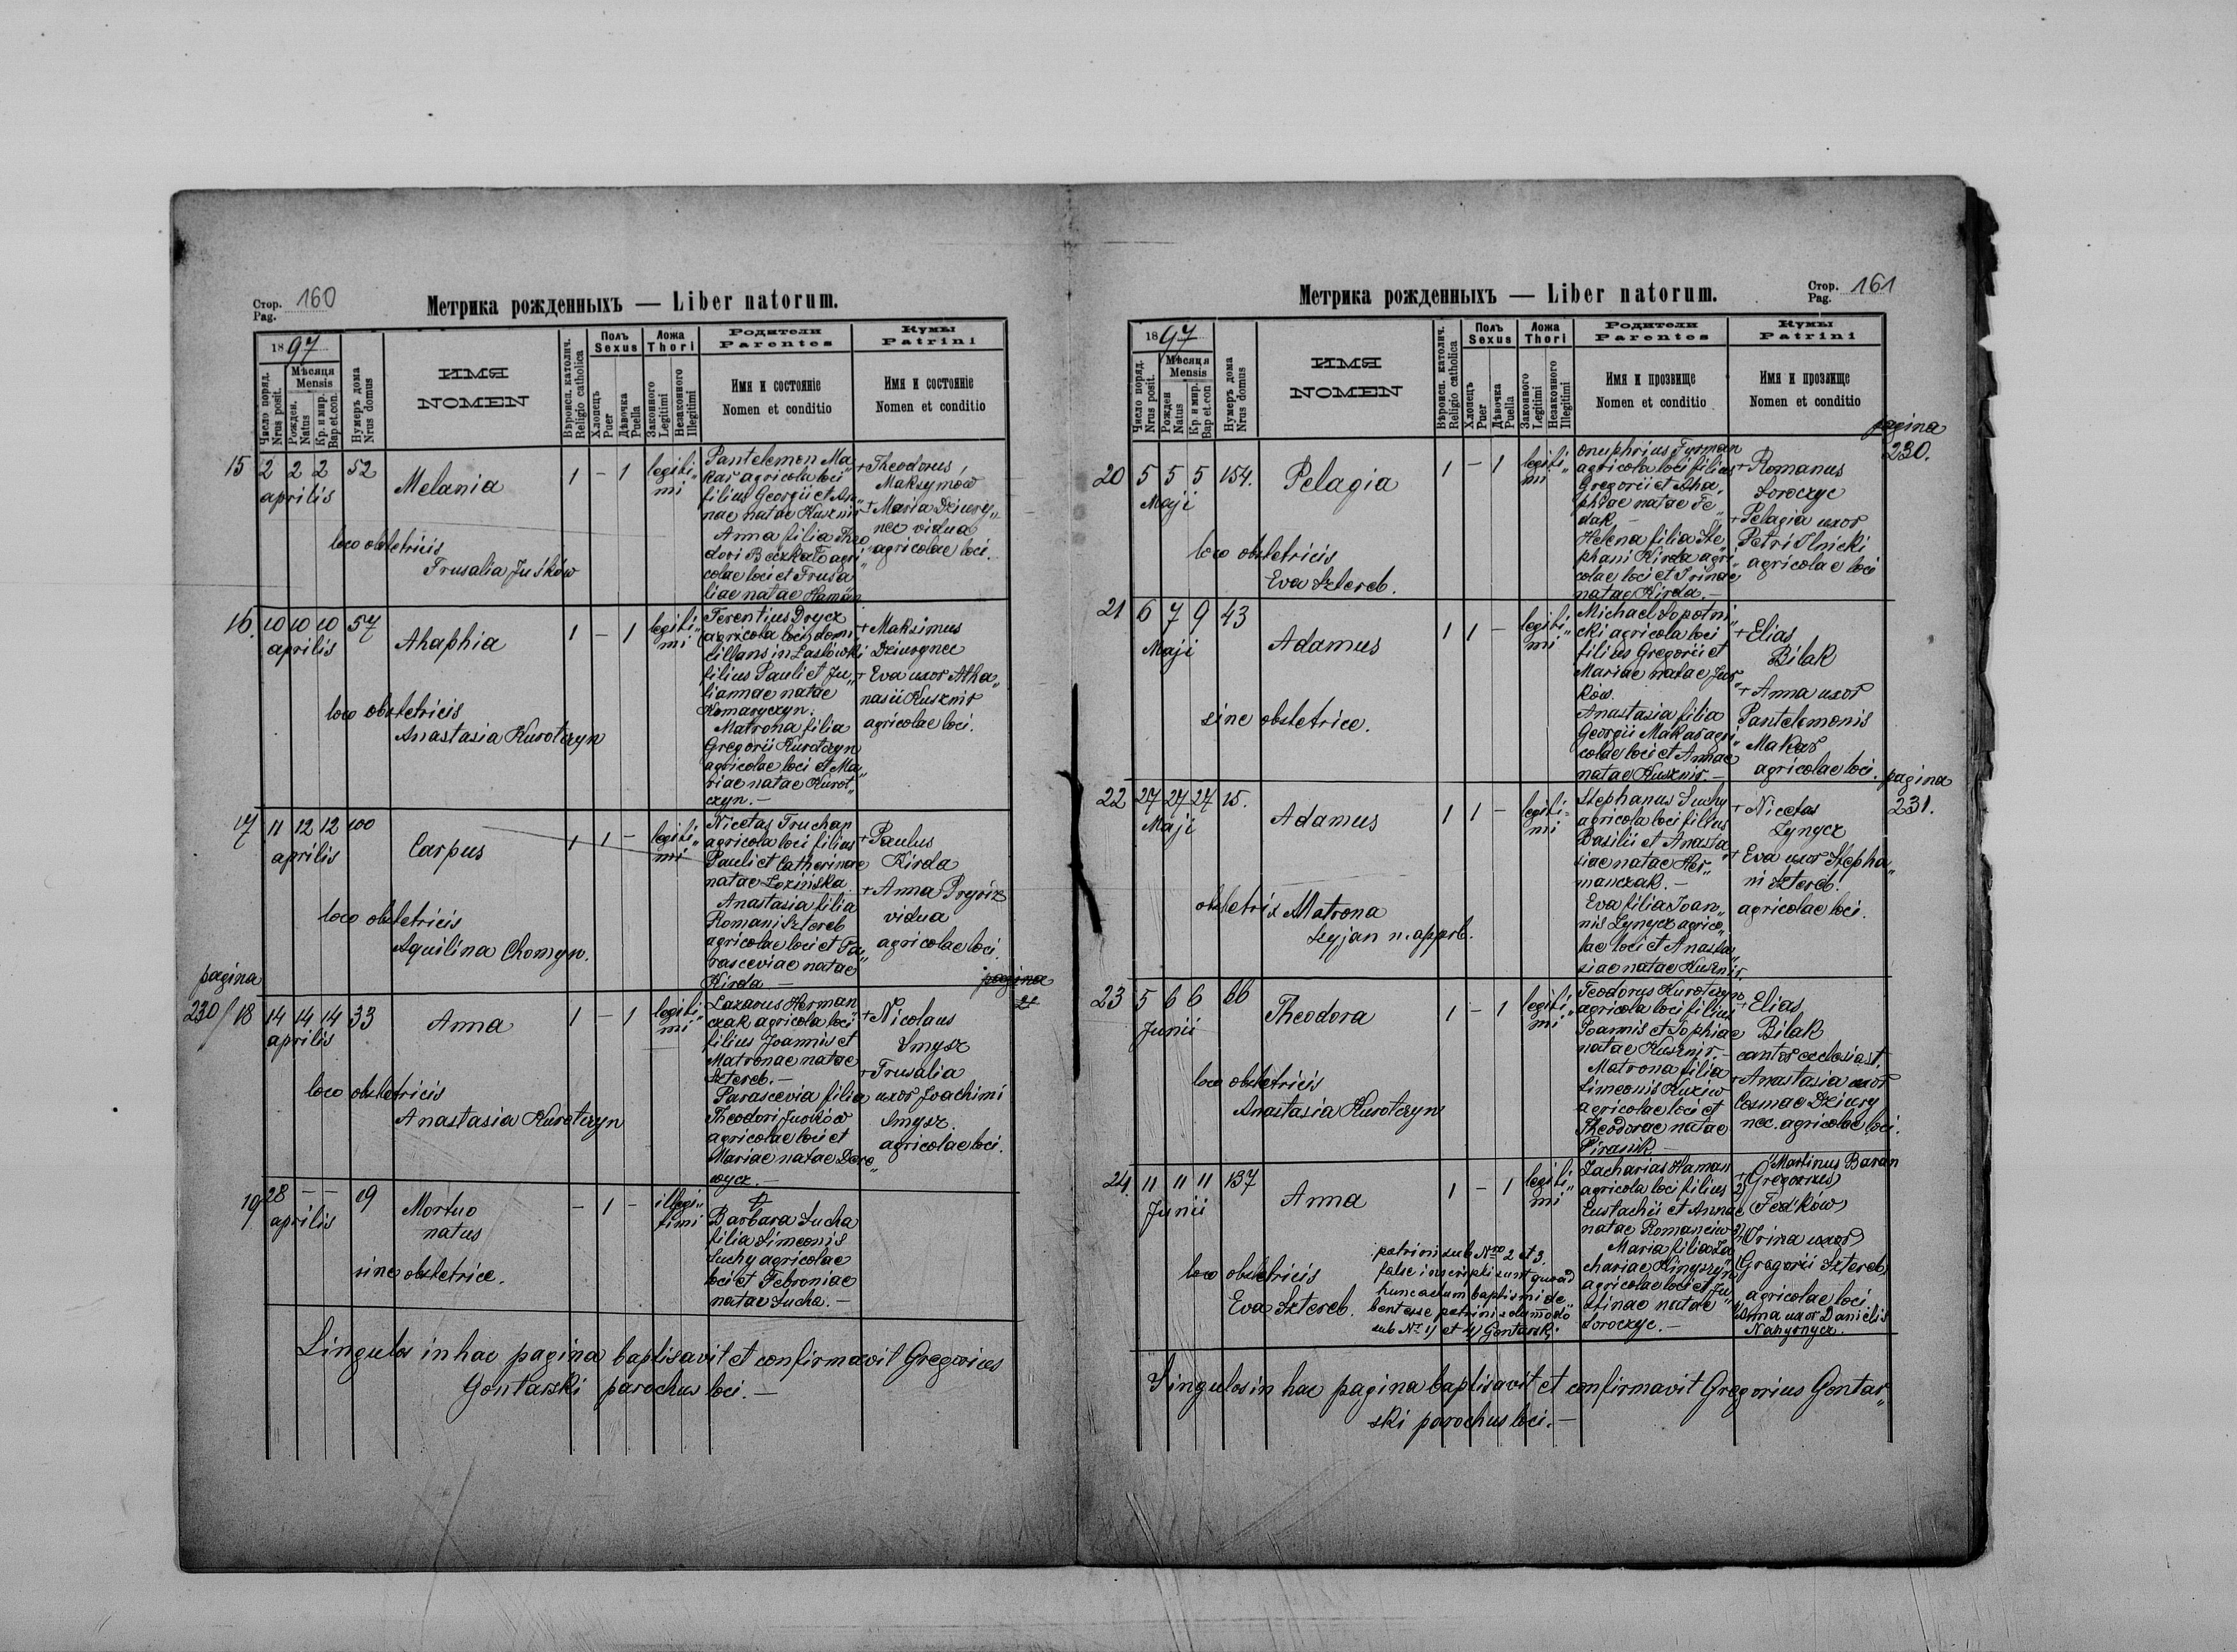 Стор. 160
Pag.
Метрика рожденныхъ — Liber natorum.
1897
Число поряд. Nrus posit.
Мѣсяця Mensis
Рожден. Natus
Кр. и мир. Bap et.con.
Нумеръ дома Nrus domus
ИМЯ
NOMEN
Вѣроисп. католич. Religio catholica
Полъ Sexus
Хлопець Puer
Дѣвочка Puella
Ложа Thori
Законного Legitimi
Незаконного Illegitimi
Родители
Parentes
Имя и состояніе
Nomen et conditio
Кумы
Patrini
Имя и состояніе
Nomen et conditio
15 2 2 2 52
aprilis
Melania
1 – 1 legiti„
mi
loco obstetricis
Frusalia Juśków
Pantelemon Ma„
kar agricola loci
filius Georgii et An„
nae natae Kusznir
Anna filia Theo
dori Boczkato agri„
colae loci et Frusa
liae natae Haman
+ Theodorus
Maksymow
+ Maria Dziury„
nec vidua
agricolae loci.
16. 10 10 10 57
aprilis
Ahaphia
1 – 1 legiti„
mi
loco obstetricis
Anastasia Kurotczyn
Terentius Drycz
(agricola loci) domi
cillans in Laslówki
filius Pauli et Ju„
liannae natae
Komaryczyn.
Matrona filia
Gregorii Kurotczyn
agricolae loci et Ma„
riae natae Kurot„
czyn. —
+ Maksimus
Dziurynec
+ Eva uxor Atha„
nasii Kusznir
agricolae loci.
17 11 12 12 100
aprilis
Carpus
1 1 – legiti„
mi
loco obstetricis
Aquilina Chomyn.
Nicetas Truchan
agricola loci filius
Pauli et Catherinae
natae Lozińska.
Anastasia filia
Romani Sztereb
agricolae loci et Pa„
rasceviae natae
Kirda —
+ Paulus
Kirda
+ Anna Pryriz
vidua
agricolae loci.
pagina
pagina
230/ 18 14 14 14 33
aprilis
Anna
1 – 1 legiti„
mi
loco obstetricis
Anastasia Kurotczyn
Lazarus Herman
czak agricola loci
filius Joannis et
Matronae natae
Sztereb. —
Parascevia filia
Theodori Jurków
agricolae loci et
Mariae natae Doro„
wycz. —
+ Nicolaus
Smysz
+ Frusalia
uxor Joachimi
Smysz.
agricolae loci.
19 28 – – 19
aprilis
Mortuo
natus
– 1 – illegi„
timi
sine obstetrice.
Barbara Sucha
filia Simeonis
Suchy agricolae
loci et Febroniae
natae Sucha. —
Singulos in hac pagina baptisavit et confirmavit Gregorius
Gontarski parochus loci. —
Стор. 161
Pag.
Метрика рожденныхъ — Liber natorum.
1897
Число поряд. Nrus posit.
Мѣсяця Mensis
Рожден Natus
Кр. и мир. Bap et.con
Нумеръ дома Nrus domus
ИМЯ
NOMEN
Вѣроисп. католич. Religio catholica
Полъ Sexus
Хлопець Puer
Дѣвочка Puella
Ложа Thori
Законного Legitimi
Незаконного Illegitimi
Родители
Parentes
Имя и прозвище
Nomen et conditio
Кумы
Patrini
Имя и прозвище
Nomen et conditio
pagina
230.
20 5 5 5 154.
Maji
Pelagia
1 – 1 legiti„
mi
loco obstetricis
Eva Sztereb.
Onuphrius Furman
agricola loci filius
Gregorii et Aha„
phiae natae Fe„
dak —
Helena filia Ste„
phani Kirda agri„
colae loci et Irinae
natae Kirda. —
+ Romanus
Soroczyc
+ Pelagia uxor
Petri Ilnicki
agricolae loci
21 6 7 9 43
Maji
Adamus
1 1 – legiti„
mi
sine obstetrice.
Michael Sopotni„
cki agricola loci
filius Gregorii et
Mariae natae Jur„
ków.
Anastasia filia
Georgii Makar agri„
colae loci et Annae
natae Kusznir. —
+ Elias
Bilak
+ Anna uxor
Pantelemonis
Makar
agricolae loci.
pagina
231.
22 27 27 27 15.
Maji
Adamus
1 1 – legiti„
mi
obstetrix Matrona
Szyjan n. approb.
Stephanus Suchy
agricola loci filius
Basilii et Anasta
siae natae Her„
manczak. —
Eva filia Joan„
nis Lynycz agrico„
lae loci et Anasta„
siae natae Kusznir.
+ Nicetas
Lynycz
+ Eva uxor Stepha„
ni Sztereb.
agricolae loci.
23 5 6 6 66
Junii
Theodora
1 – 1 legiti„
mi
loco obstetricis
Anastasia Kurotczyn
Teodorus Kurotczyn
agricola loci filius
Joannis et Sophiae
natae Kusznir. —
Matrona filia
Simeonis Kuziw
agricolae loci et
Theodorae natae
Pirasiik —
+ Elias
Bilak
cantor ecclesiast.
+ Anastasia uxor
Cosmae Dziury
nec. agricolae loci.
24. 11 11 11 137
Junii
Anna
1 – 1 legiti„
mi
loco obstetricis
Eva Sztereb.
patrini sub Nro 2 et 3.
false inscripti sunt quoad
hunc actum baptismi de
bent esse patrini solummodo
sub Nr 1) et 4) Gontarski
Zacharias Haman
agricola loci filius
Eustachii et Annae
natae Romanciw
Maria filia Za
chariae Kinyszyn
agricolae loci et Ju„
stinae natae
Soroczyc. —
1) Martinus Baran
+ (Gregorius)
2) (Fedków)
3) (Irina uxor)
(Gregorii Sztereb)
agricolae loci
4) Anna uxor Danielis
Nahyrnycz.
Singulos in hac pagina baptisavit et confirmavit Gregorius Gontar„
ski parochus loci. —